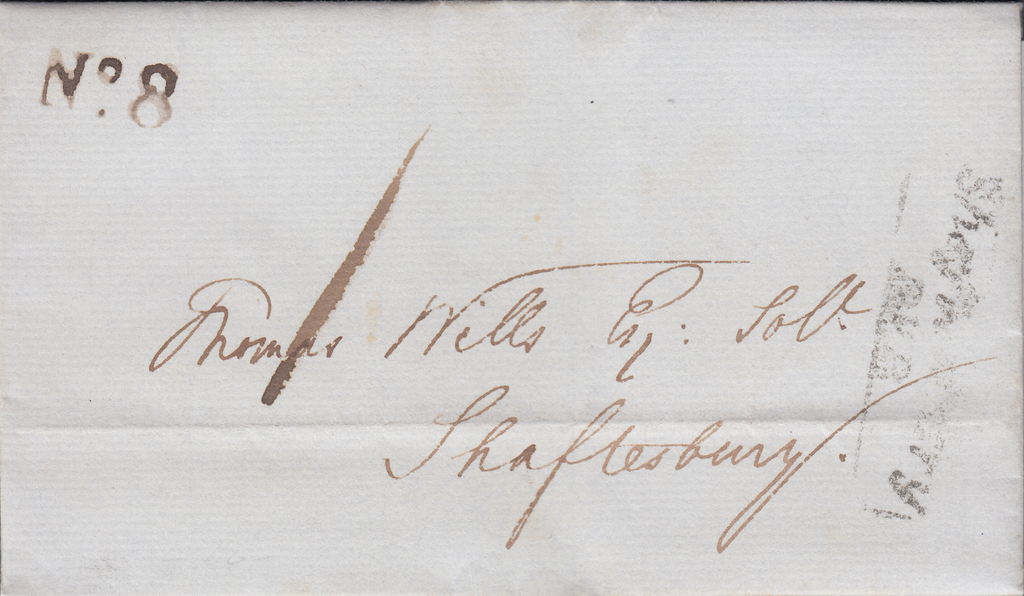 No. 8
1
Thomas Wills Esq: Solr.
Shaftesbury.